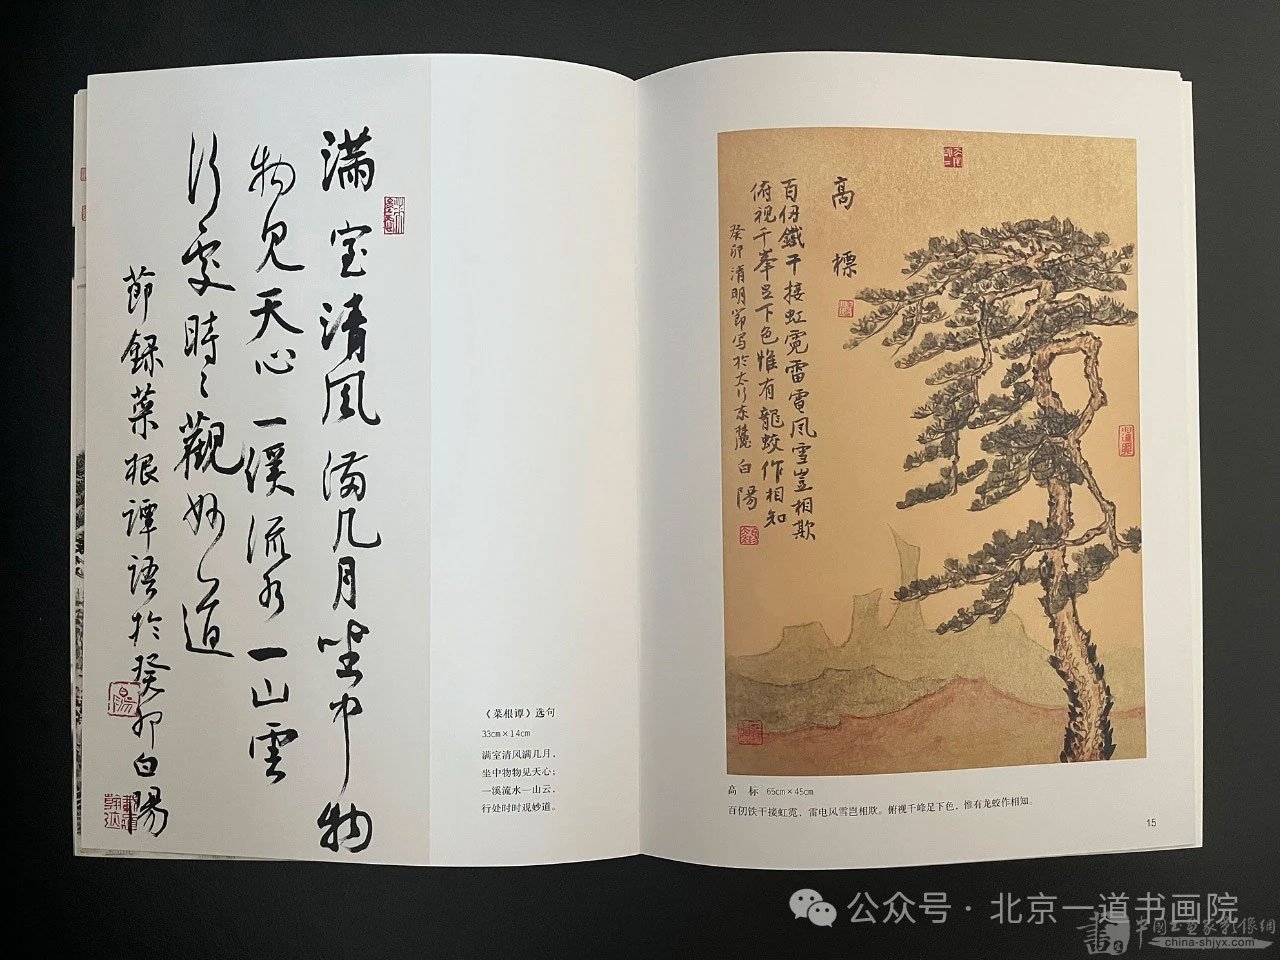 满室清风满几月坐中物
物见天心一溪流水一山云
行处时时觀妙道
節録菜根谭语於癸卯白陽
《菜根谭》选句
33cm×14cm
满室清风满几月，
坐中物物见天心；
一溪流水一山云，
行处时时观妙道。
高標
百仞鐵干接虹霓雷電风雪豈相欺
俯视千峯足下色惟有龍蛟作相知
癸卯清明節写於太行东麓白陽
高 标 65cm×45cm
百仞铁干接虹霓，雷电风雪岂相欺。俯视千峰足下色，惟有龙蛟作相知。
15
公众号·北京一道书画院
中國书画家影像網
china-shjyx.com